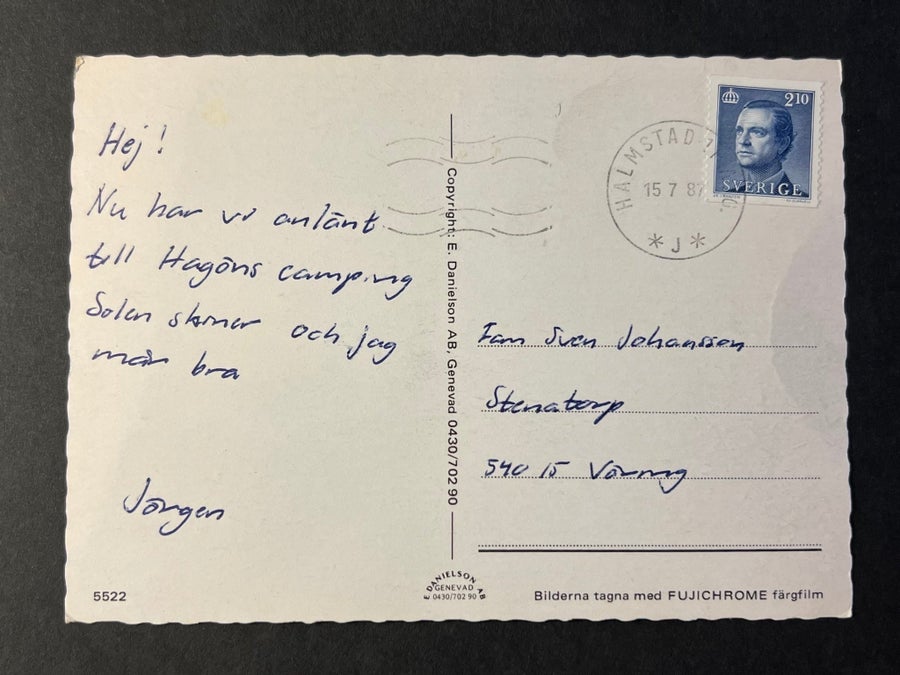 Hej!
Nu har vi anlänt
till Hagöns camping
Solen skiner och jag
mår bra
Jörgen
5522
Copyright: E. Danielson AB, Genevad 0430/702 90
E. DANIELSON AB
GENEVAD
0430/702 90
2 10
SVERIGE
HALMSTAD 1
15 7 87
* J *
Fam Sven Johansson
Stenatorp
540 15 Väring
Bilderna tagna med FUJICHROME färgfilm